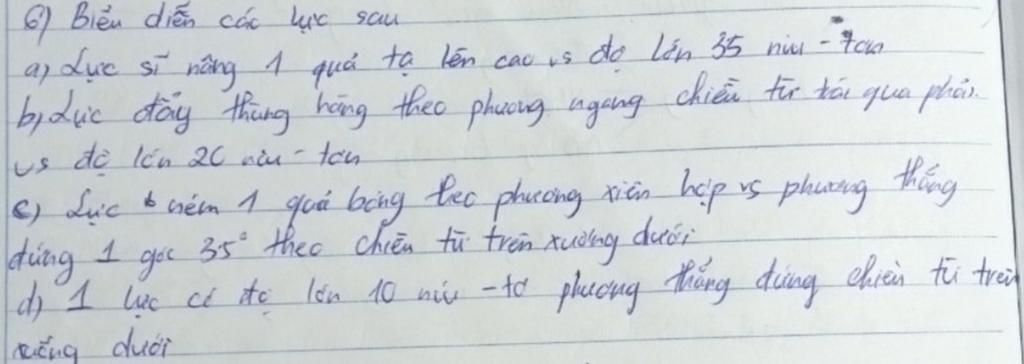 6) Biểu diễn các lực sau
a) Lực sĩ nâng 1 quả tạ lên cao vs độ lớn 35 niu - tơn
b) Lực đẩy thùng hàng theo phương ngang chiều từ trái qua phải.
vs độ lớn 20 niu - tơn
c) Lực ném 1 quả bóng theo phương xiên hợp vs phương thẳng
đứng 1 góc 35° theo chiều từ trên xuống dưới
d) 1 lực có độ lớn 10 niu - tơ phương thẳng đứng chiều từ trên
xuống dưới